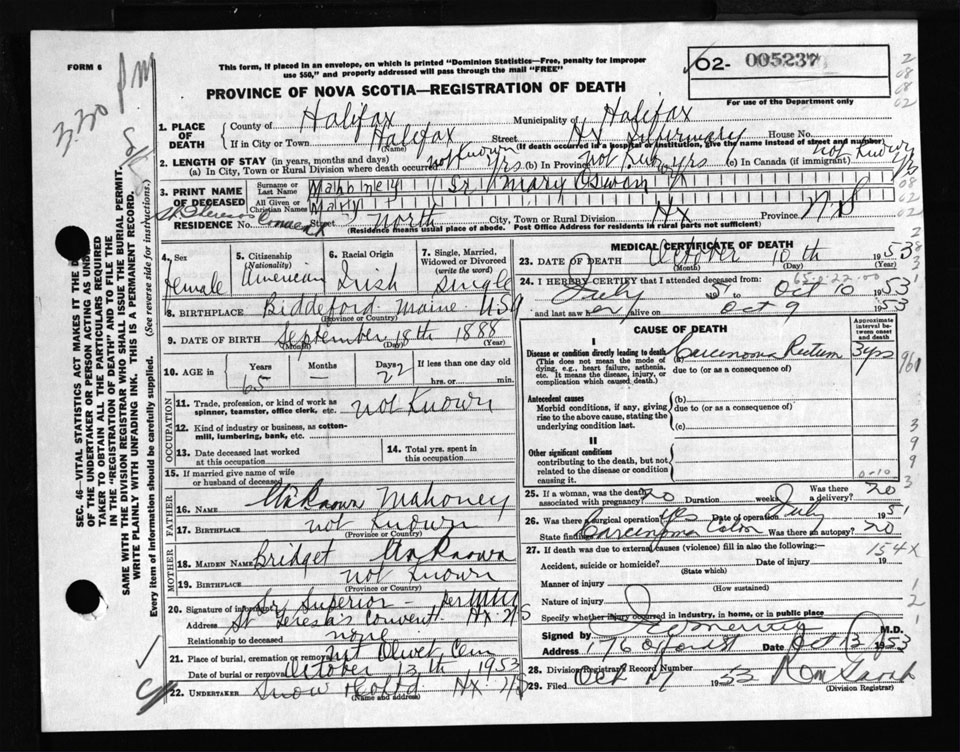 FORM 6
3.30 pm
This form, if placed in an envelope, on which is printed "Dominion Statistics—Free, penalty for improper
use $50," and properly addressed will pass through the mail "FREE"
02- 005237
For use of the Department only
PROVINCE OF NOVA SCOTIA—REGISTRATION OF DEATH
1. PLACE OF DEATH
County of Halifax Municipality of Halifax
If in City or Town Halifax Street Hx Infirmary House No.
(Name) (If death occurred in a hospital or institution, give the name instead of street and number)
2. LENGTH OF STAY (in years, months and days)
(a) In City, Town or Rural Division where death occurred not Known yrs (b) In Province not Kn yrs (c) In Canada (if immigrant) not Known yrs
3. PRINT NAME OF DECEASED
Surname or Last Name Mahoney Sr. Mary
All Given or Christian Names Mary
RESIDENCE No. St Theresas Convent Street North City, Town or Rural Division Hx Province NS
(Residence means usual place of abode. Post Office Address for residents in rural parts not sufficient)
4. Sex
Female
5. Citizenship
(Nationality)
American
6. Racial Origin
Irish
7. Single, Married,
Widowed or Divorced
(write the word)
Single
8. BIRTHPLACE Biddeford Maine USA
(Province or Country)
9. DATE OF BIRTH September 18th 1888
(Month) (Day) (Year)
10. AGE in
Years 65
Months —
Days 22
If less than one day old
hrs. or min.
OCCUPATION
11. Trade, profession, or kind of work as
spinner, teamster, office clerk, etc. not Known
12. Kind of industry or business, as cotton-
mill, lumbering, bank, etc.
13. Date deceased last worked
at this occupation
14. Total yrs. spent in
this occupation
15. If married give name of wife
or husband of deceased
FATHER
16. NAME Unknown Mahoney
17. BIRTHPLACE not Known
(Province or Country)
MOTHER
18. MAIDEN NAME Bridget Unknown
19. BIRTHPLACE not Known
(Province or Country)
20. Signature of informant Sr Superior — per
Address St Teresa's Convent Hx NS
Relationship to deceased none
21. Place of burial, cremation or removal Mt Olivet Cem
Date of burial or removal October 13th 1953
22. UNDERTAKER Snow & Co Ltd Hx NS
(Name and address)
SEC. 46—VITAL STATISTICS ACT MAKES IT THE D
OF THE UNDERTAKER OR PERSON ACTING AS UNDE
TAKER TO OBTAIN ALL THE PARTICULARS REQUIRED
IN THE "REGISTRATION OF DEATH" AND TO FILE THE
SAME WITH THE DIVISION REGISTRAR WHO SHALL ISSUE THE BURIAL PERMIT.
WRITE PLAINLY WITH UNFADING INK. THIS IS A PERMANENT RECORD.
Every item of information should be carefully supplied. (See reverse side for instructions.)
MEDICAL CERTIFICATE OF DEATH
23. DATE OF DEATH October 10th 1953
(Month) (Day) (Year)
24. I HEREBY CERTIFY that I attended deceased from:
July 1951 to Oct 10 1953
and last saw her alive on Oct 9 1953
CAUSE OF DEATH
Approximate
interval be-
tween onset
and death
I
Disease or condition directly leading to death (a) Carcinoma Rectum 3 yrs
(This does not mean the mode of
dying, e.g., heart failure, asthenia,
etc. It means the disease, injury, or
complication which caused death.)
due to (or as a consequence of)
Antecedent causes
Morbid conditions, if any, giving
rise to the above cause, stating the
underlying condition last.
(b)
due to (or as a consequence of)
(c)
II
Other significant conditions
contributing to the death, but not
related to the disease or condition
causing it.
25. If a woman, was the death
associated with pregnancy? no Duration weeks Was there
a delivery? no
26. Was there a surgical operation yes Date of operation July 1951
State findings Carcinoma Colon Was there an autopsy? no
27. If death was due to external causes (violence) fill in also the following:— 154X
Accident, suicide or homicide? Date of injury 19
(State which)
Manner of injury
(How sustained)
Nature of injury
Specify whether injury occurred in industry, in home, or in public place
Signed by M.D.
Address 176 Oxford St Date Oct 13 1953
28. Division Registrar's Record Number
29. Filed Oct 1953
(Division Registrar)